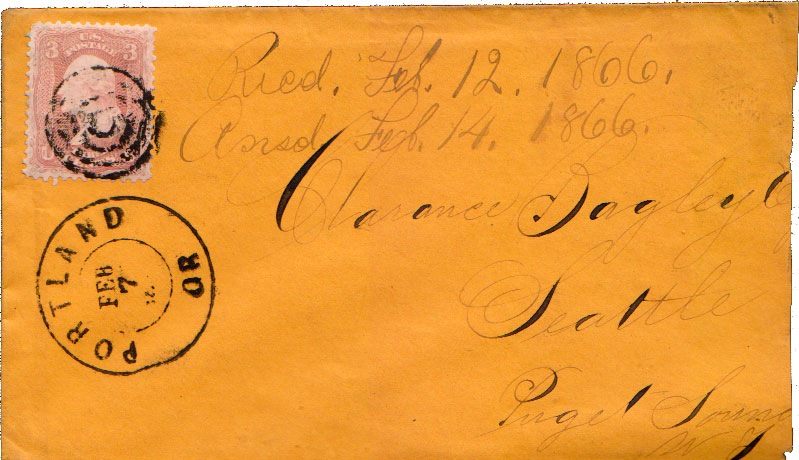 3 U.S. 3
POSTAGE
Recd. Feb. 12. 1866.
Ansd Feb. 14. 1866.
Clarance Bagley
Seattle
Puget Soun
W
PORTLAND OR
FEB
7